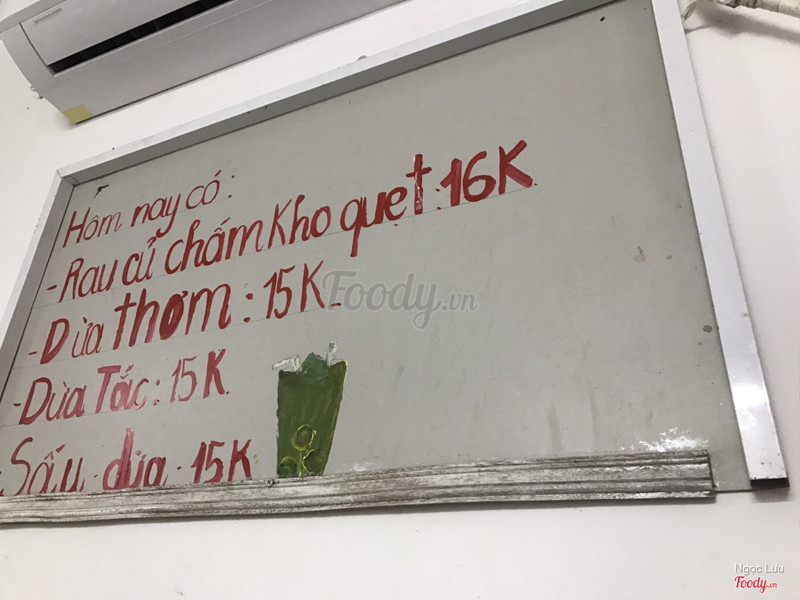 Hôm nay có:
- Rau củ chấm kho quẹt 16K
- Dừa thơm: 15K
- Dừa Tắc: 15K
- Sấu dừa 15K
Foody.vn
Ngoc Luu
Foody.vn